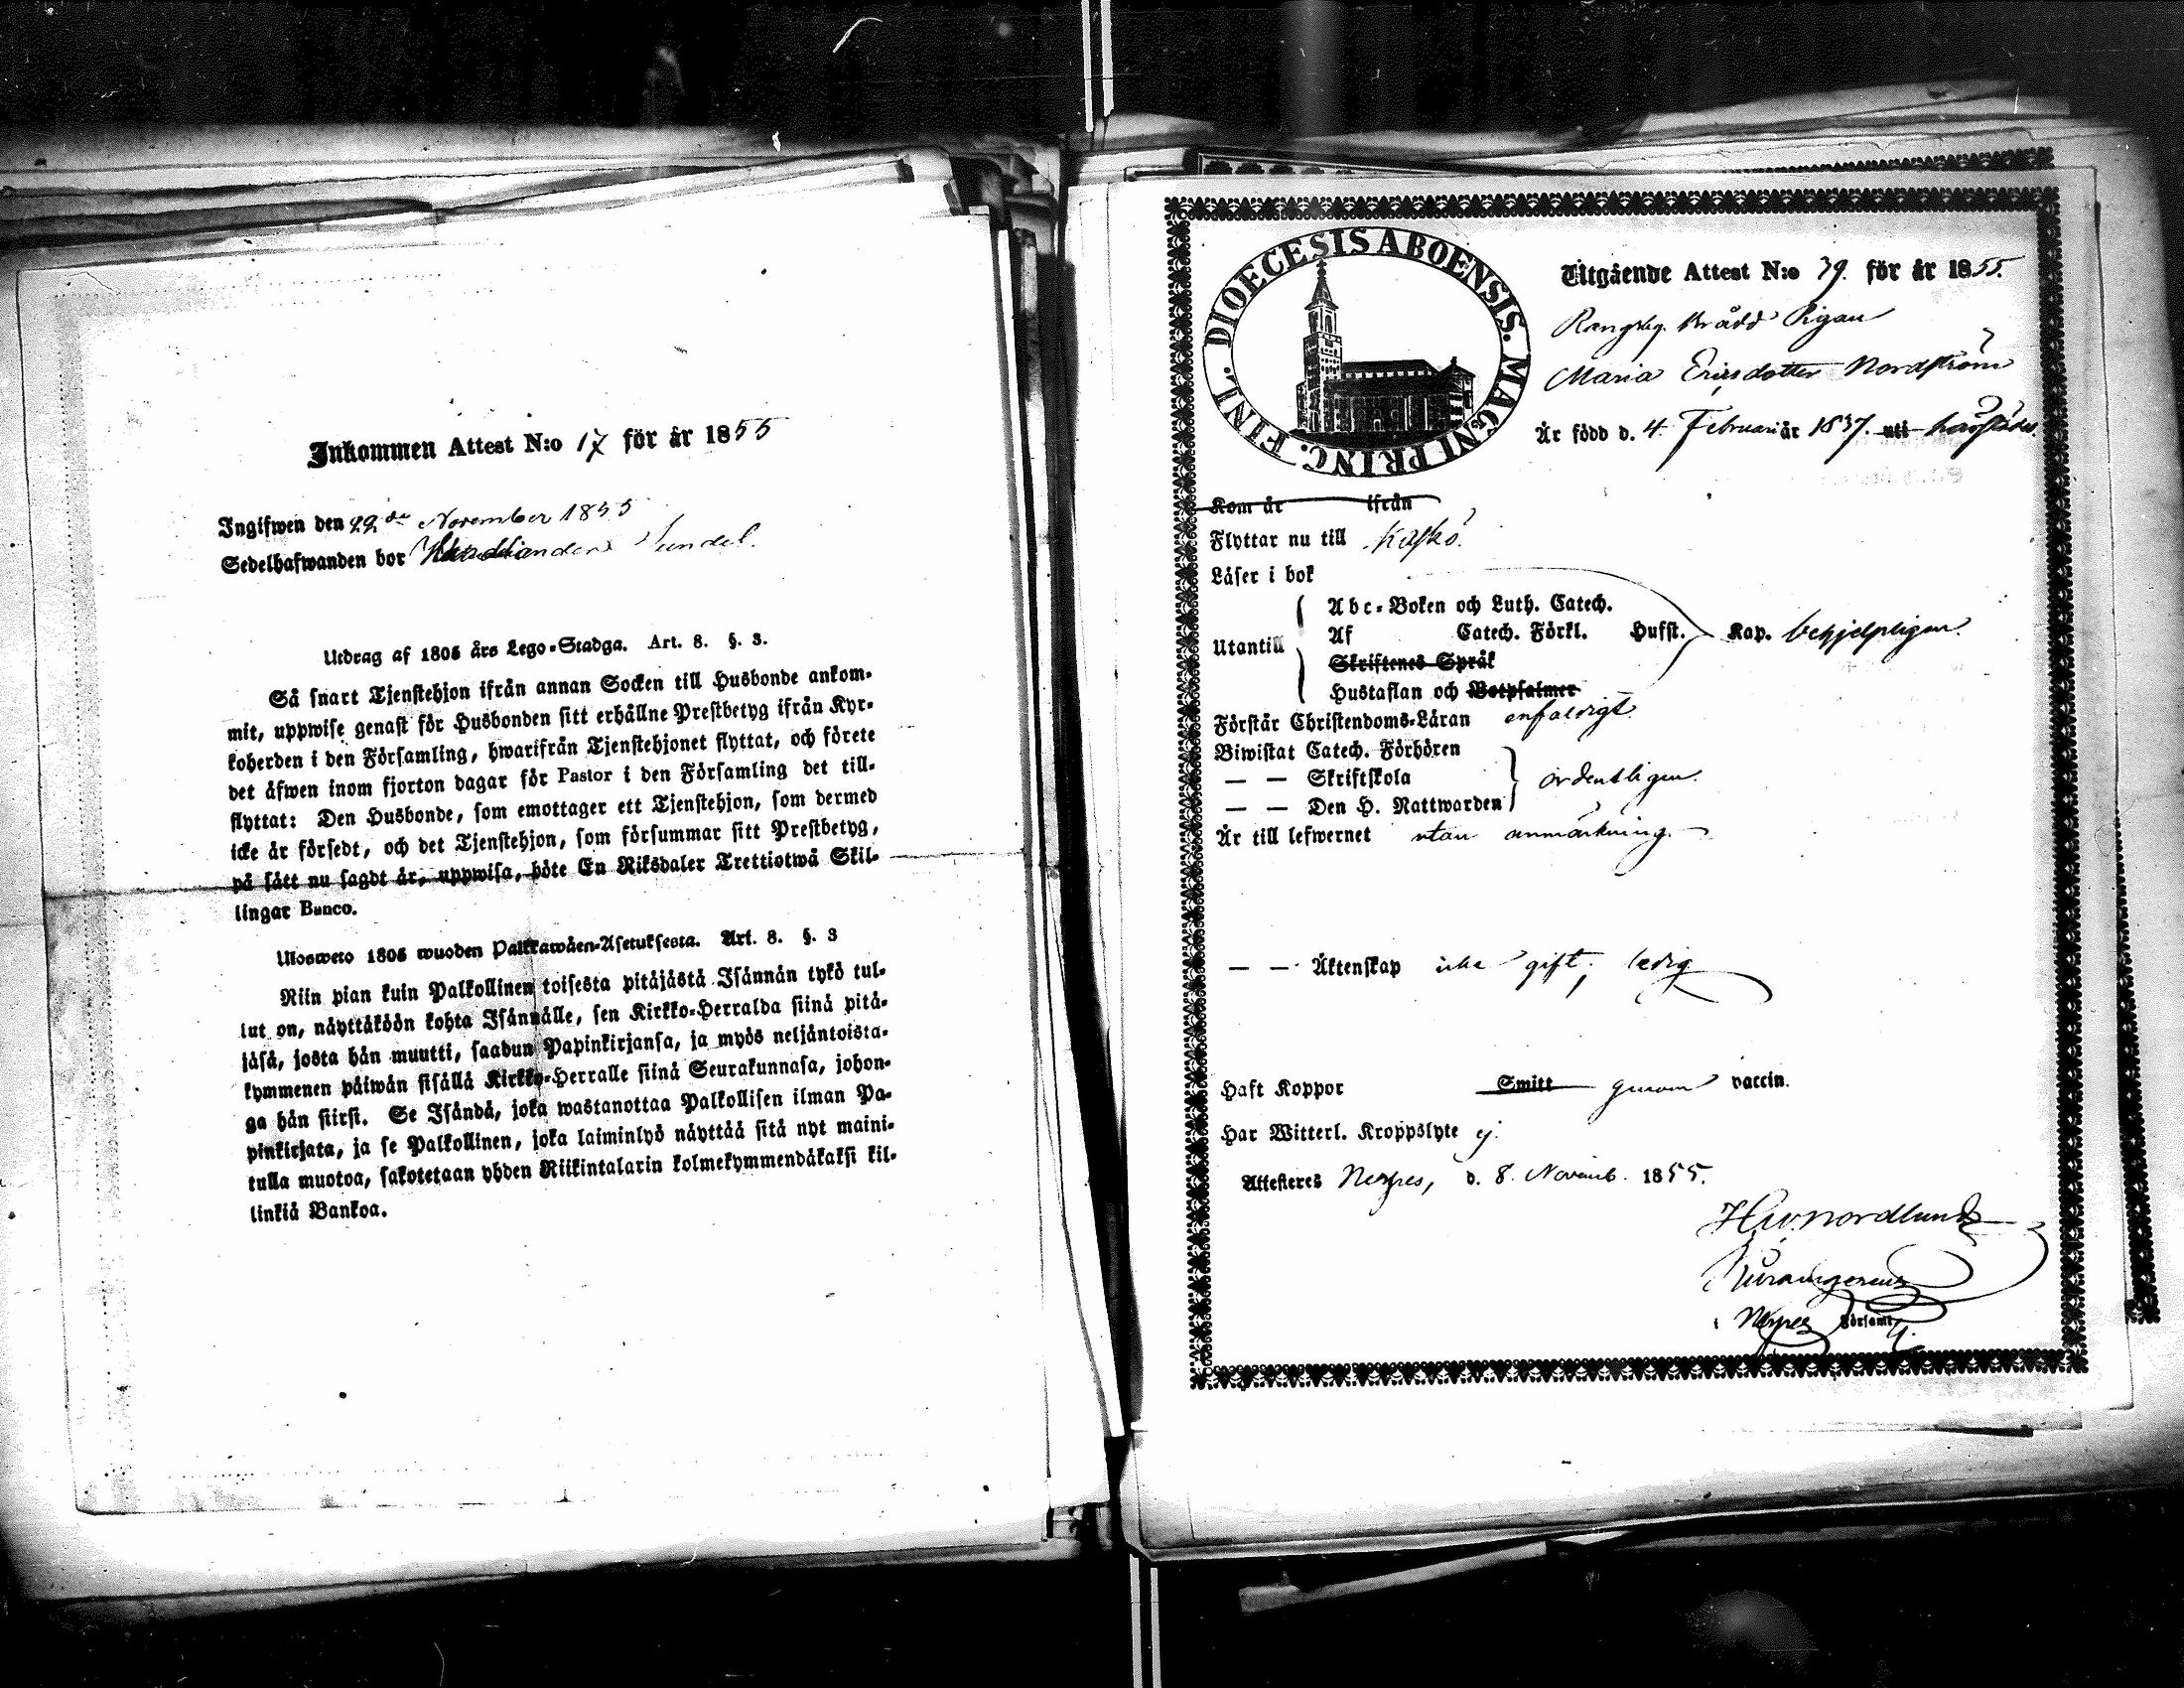 Inkommen Attest N:o 17 för år 1855
Ingifwen den 22de November 1855
Sedelhafwanden bor Sundel.
Utdrag af 1805 års Lego-Stadga. Art. 8. §. 3.
Så snart Tjenstehjon ifrån annan Socken till Husbonde ankom-
mit, uppwise genast för Husbonden sitt erhållne Prestbetyg ifrån Kyr-
koherden i den Församling, hwarifrån Tjenstehjonet flyttat, och förete
det äfwen inom fjorton dagar för Pastor i den Församling det till-
flyttat: Den Husbonde, som emottager ett Tjenstehjon, som dermed
icke är försedt, och det Tjenstehjon, som försummar sitt Prestbetyg,
på sätt nu sagdt är, uppwisa, böte En Riksdaler Trettiotwå Skil-
lingar Banco.
Ulosweto 1805 wuoden Palkkawäen-Asetuksesta. Art. 8. §. 3
Niin pian kuin Palkollinen toisesta pitäjästä Isännän tykö tul-
lut on, näyttäköön kohta Isännälle, sen Kirkko-Herralda siinä pitä-
jäsä, josta hän muutti, saadun Papinkirjansa, ja myös neljäntoista-
kymmenen päiwän sisällä Kirkko-Herralle siinä Seurakunnasa, johon-
ga hän siirsi. Se Isändä, joka wastanottaa Palkollisen ilman Pa-
pinkirjata, ja se Palkollinen, joka laiminlyö näyttää sitä nyt maini-
tulla muotoa, sakotetaan yhden Riikintalarin kolmekymmendäkaksi kil-
linkiä Bankoa.
DIOECESIS ABOENSIS. MAGNI PRINC. FINL.
Utgående Attest N:o 39. för år 1855.
Pigan
Maria Ericsdotter Nordström
Är född d. 4 Februari år 1837. uti
Kom år ifrån
Flyttar nu till Kaskö.
Läser i bok
Abc-Boken och Luth. Catech.
Utantill Af Catech. Förkl. Husst. Kap. behjelpligen.
Skriftenes Språk
Hustaflan och Botpsalmer
Förstår Christendoms-Läran enfaldigt.
Biwistat Catech. Förhören
— — Skriftskola ordentligen.
— — Den H. Nattwarden
Är till lefwernet utan anmärkning.
— — Äktenskap icke gift, ledig
Haft Koppor Smitt genom vaccin.
Har Witterl. Kroppslyte ej.
Attesteres Nerpes, d. 8. Novemb. 1855.
Nordlund
i Nerpes Församl.